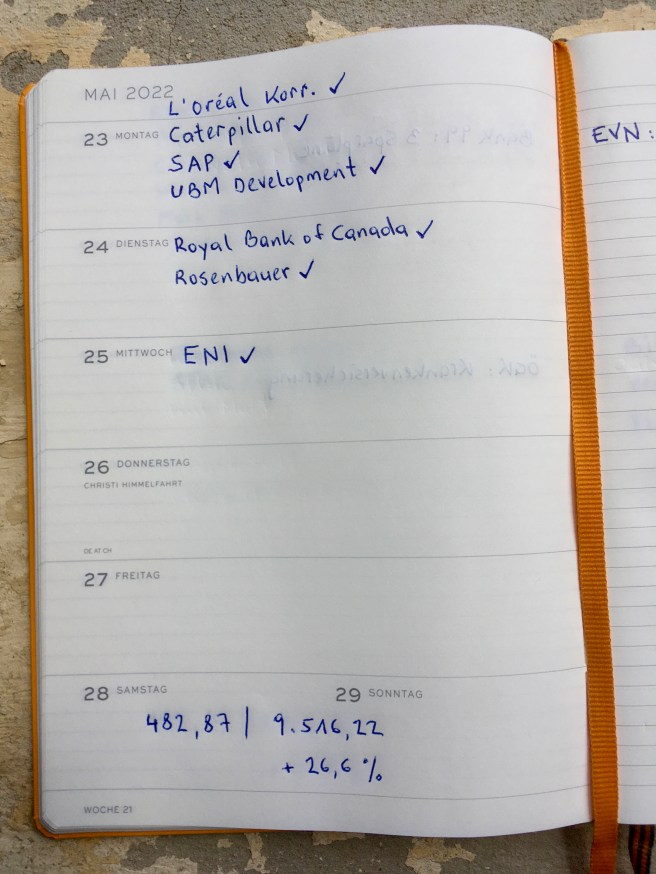 MAI 2022
L'oréal Korr. ✓
23 MONTAG Caterpillar ✓
SAP ✓
UBM Development ✓
24 DIENSTAG Royal Bank of Canada ✓
Rosenbauer ✓
25 MITTWOCH ENI ✓
26 DONNERSTAG
CHRISTI HIMMELFAHRT
DE AT CH
27 FREITAG
28 SAMSTAG 29 SONNTAG
482,87 | 9.516,22
+ 26,6 %
WOCHE 21
EVN: